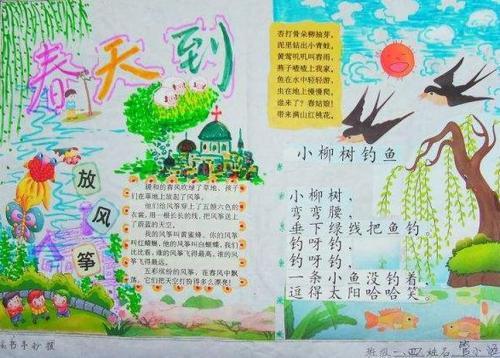 春天到
放风筝
暖和的春风吹绿了草地，孩子
们在草地上放起了风筝。
他们给风筝穿上了五颜六色的
衣裳，用一根长长的线，把风筝送上
了蔚蓝的天空。
我的风筝叫黄蜜蜂，你的风筝
叫红蜻蜓，他的风筝叫白蝴蝶，我们
比比看，谁的风筝飞得最高，谁的风
筝飞得最远。
五彩缤纷的风筝，在春风中飘
荡，它们把天空打扮得多么漂亮！
书手抄报
杏打骨朵柳抽芽，
泥里钻出小青蛙，
黄莺叽叽叫春雨，
燕子喳喳上我家，
鱼在水中轻轻游，
虫在地上慢慢爬，
谁来了？春姑娘！
带来满山红桃花。
小柳树钓鱼
小柳树，
弯弯腰，
垂下绿线把鱼钓，
钓呀钓，
钓呀钓，
一条小鱼没钓着，
逗得太阳哈哈笑。
班级 姓名